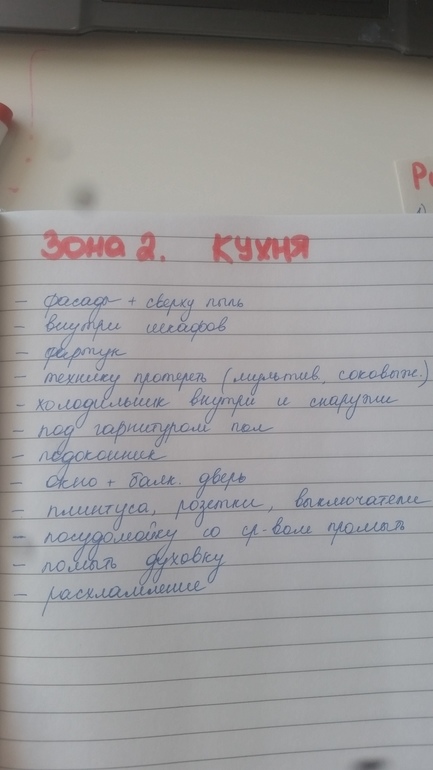 Зона 2. Кухня
- фасады + сверху пыль
- внутри шкафов
- фартук
- технику протереть (мультив., соковыж.)
- холодильник внутри и снаружи
- под гарнитуром пол
- подоконник
- окно + балк. дверь
- плинтуса, розетки, выключатели
- посудомойку со ср-вом промыть
- помыть духовку
- расхламление